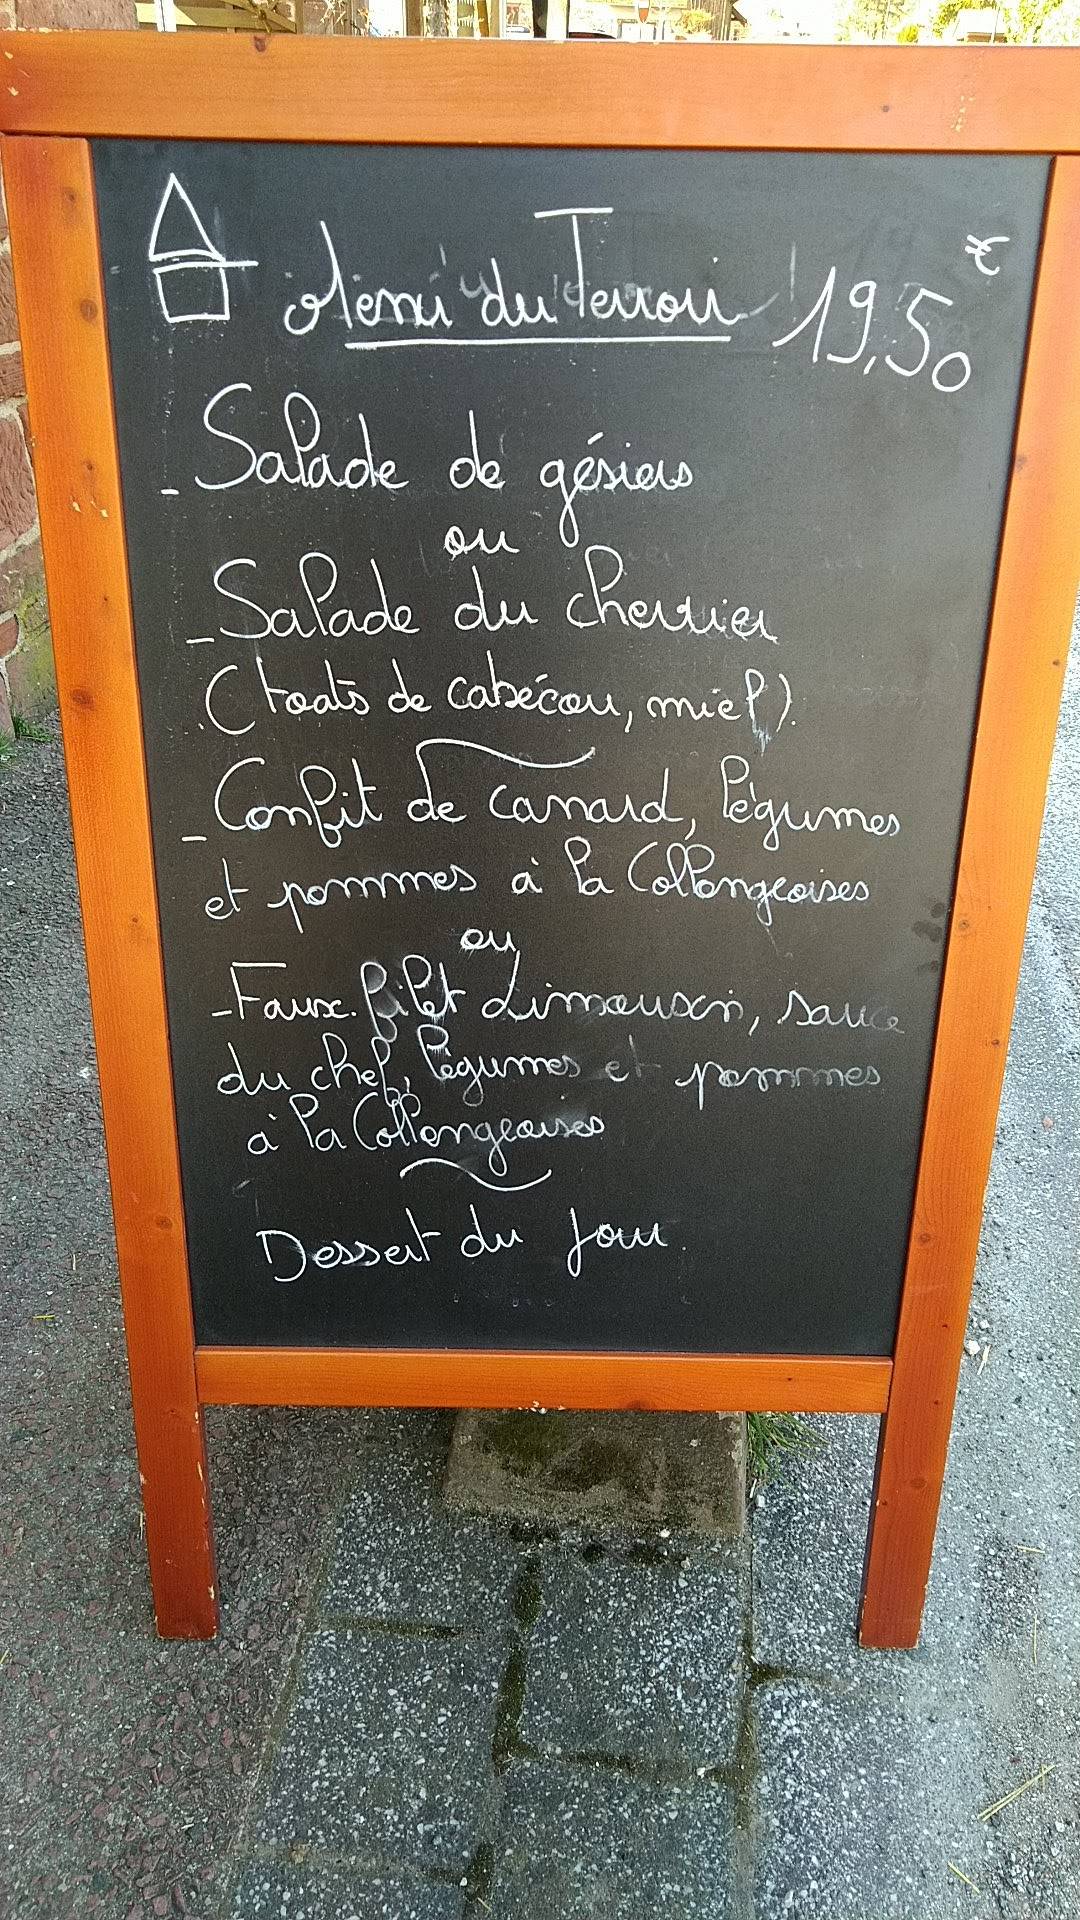 Menu du Terroir 19,50 €
- Salade de gésiers
ou
- Salade du chevrier
(toats de cabécou, miel).
- Confit de canard, légumes
et pommes à la Collongeoises
ou
- Faux-filet Limousin, sauce
du chef, légumes et pommes
à la Collongeoises
Dessert du jour.